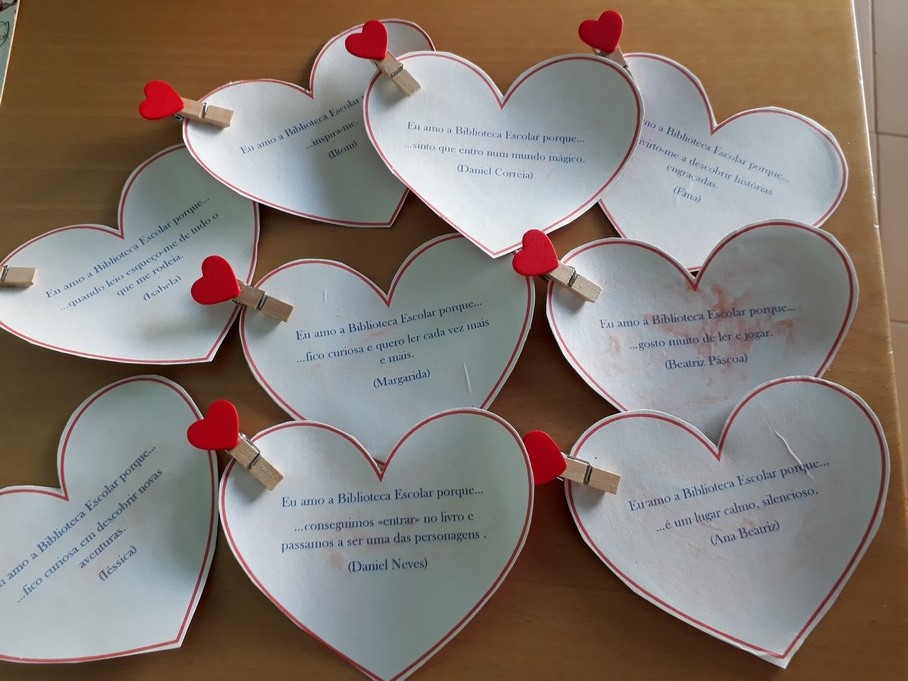 Eu amo a Biblioteca Escolar
...inspira-me.
Eu amo a Biblioteca Escolar porque...
...sinto que entro num mundo mágico.
(Daniel Correia)
amo a Biblioteca Escolar porque...
a descobrir histórias
engraçadas.
(Ema)
Eu amo a Biblioteca Escolar porque...
...quando leio esqueço-me de tudo o
que me rodeia.
(Isabela)
Eu amo a Biblioteca Escolar porque...
...fico curiosa e quero ler cada vez mais
e mais.
(Margarida)
Eu amo a Biblioteca Escolar porque...
...gosto muito de ler e jogar.
(Beatriz Páscoa)
amo a Biblioteca Escolar porque...
...fico curiosa em descobrir novas
aventuras.
(Jéssica)
Eu amo a Biblioteca Escolar porque...
...conseguimos «entrar» no livro e
passamos a ser uma das personagens .
(Daniel Neves)
Eu amo a Biblioteca Escolar porque...
...é um lugar calmo, silencioso.
(Ana Beatriz)